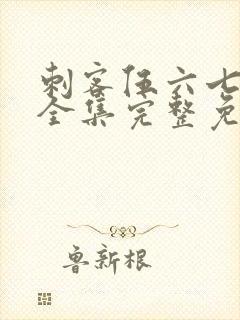 刺客伍六七
全集完整免
鲁新根